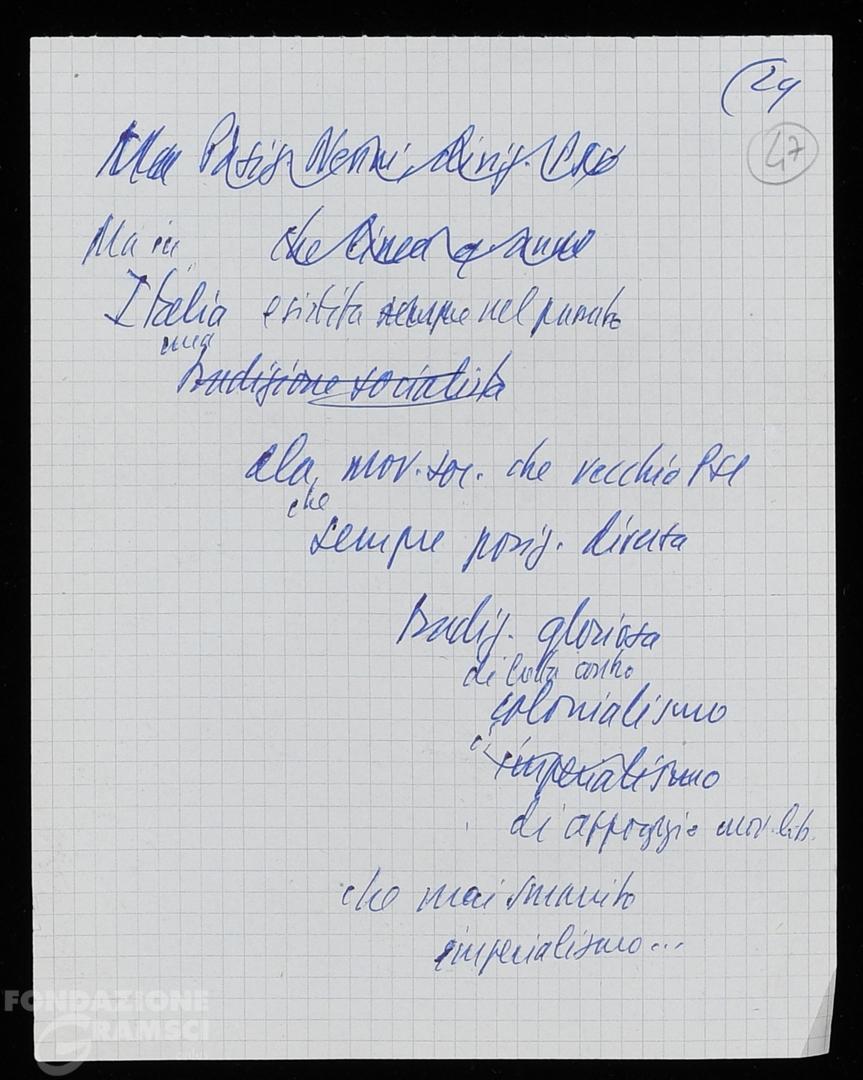 (24
47
Ma Posiz. Nenni, dirig. PSI
Ma in che linea
Italia esistita sempre nel passato
una
tradizione socialista
ala mov. soc. che vecchio PSI
che
sempre posiz. diversa
tradiz. gloriosa
di lotta contro
colonialismo
imperialismo
di appoggio mov. lib.
che mai smarrito
imperialismo...
FONDAZIONE
GRAMSCI